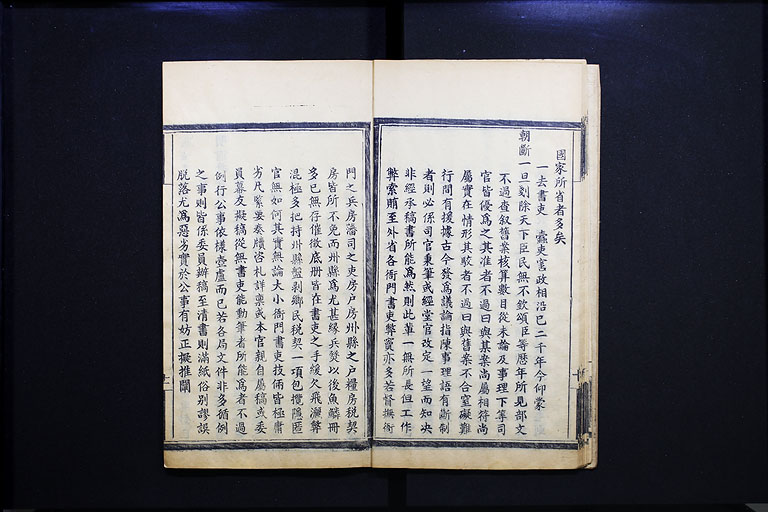 國家所省者多矣
一去書吏　蠹吏害政相沿已二千年今仰蒙
朝斷一旦剗除天下臣民無不欽頌臣等歷年所見部文
不過查叙舊案核算數目從未論及事理下等司
官皆優為之其准者不過曰與某案尚屬相符尚
屬實在情形其駁者不過曰與舊案不合窒礙難
行間有援據古今發為議論指陳事理語有斷制
者則必係司官秉筆或經堂官改定一望而知決
非經承稿書所能為然則此輩一無所長但工作
弊索賄至外省各衙門書吏弊竇亦多若督撫衙
門之兵房藩司之吏房户房州縣之户糧房稅契
房皆所不免而州縣為尤甚緣兵燹以後魚鱗冊
多已無存催徵底冊皆在書吏之手緩欠飛灑弊
混極多把持州縣盤剥鄉民稅契一項包攬隱匿
官無如何其實無論大小衙門書吏技倆皆極庸
劣凡緊要奏牘咨札詳稟或本官親自屬稿或委
員幕友擬稿從無書吏能動筆者所能為者不過
例行公事依樣壺盧而已若各局文件非多循例
之事則皆係委員辦稿至清書則滿紙俗别謬誤
脱落尤為惡劣實於公事有妨正擬推闡